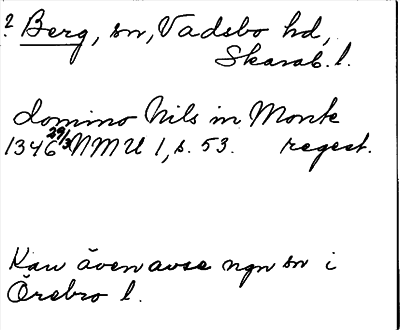 ? Berg, sn, Vadsbo hd,
Skarab. l.
domino Nils in Monte
1346 29/3 NMU 1, s. 53. regest.
Kan även avse ngn sn i
Örebro l.